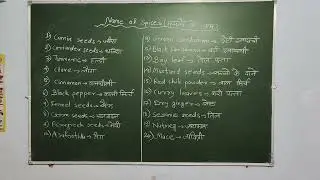 Name of Spices (मसालों के नाम)
1) Cumin seeds - जीरा
2) Coriander seeds - धनिया
3) Turmeric - हल्दी
4) Clove - लौंग
5) Cinnamon - दालचीनी
6) Black pepper - काली मिर्च
7) Fennel seeds - सौंफ
8) Carom seeds - अजवाइन
9) Fenugreek seeds - मेथी
10) Asafoetida - हींग
11) Green cardamom - हरी इलायची
12) Black cardamom -
13) Bay leaf - तेज पत्ता
14) Mustard seeds -
15) Red chilli powder -
16) Curry leaves - करी पत्ता
17) Dry ginger - सोंठ
18) Sesame seeds - तिल
19) Nutmeg - जायफल
20) Mace - जावित्री